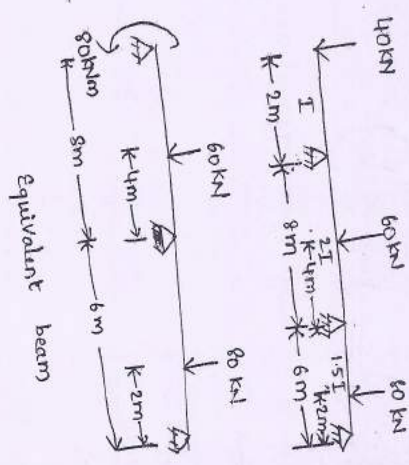 40KN 60KN 80KN
I 2I 1.5I
K-2m K-4m K2m
8m 6m
60KN 80KN
80KNm K-4m K-2m
8m 6m
Equivalent beam